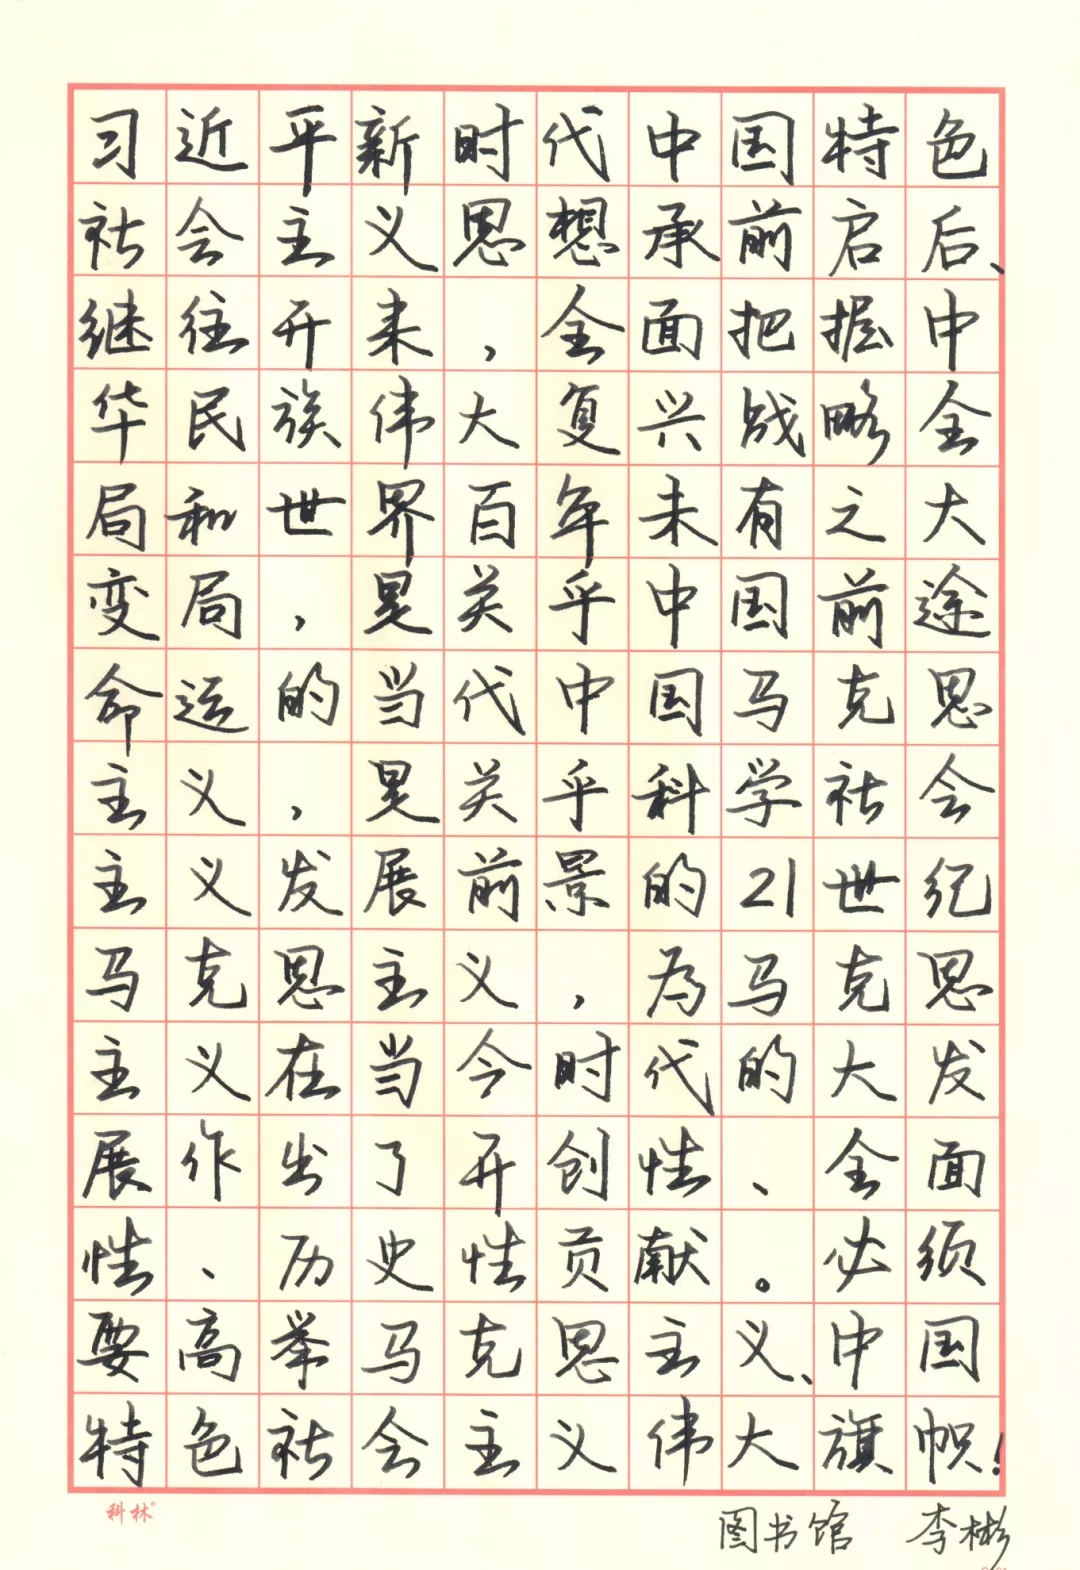 习近平新时代中国特色
社会主义思想承前启后、
继往开来，全面把握中
华民族伟大复兴战略全
局和世界百年未有之大
变局，是关乎中国前途
命运的当代中国马克思
主义，是关乎科学社会
主义发展前景的21世纪
马克思主义，为马克思
主义在当今时代的大发
展作出了开创性、全面
性、历史性贡献。必须
要高举马克思主义、中国
特色社会主义伟大旗帜！
科林®
图书馆 李彬